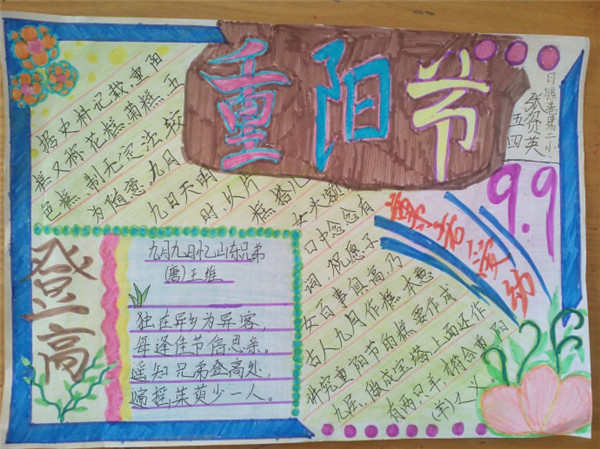 重阳节
日照港第二小
张贤英
五四
9.9
据史料记载,重阳
糕又称花糕菊糕五
色糕制无定法较
为随意九月
九日天明
时以片
糕搭儿
女头额
口中念念有
词祝愿子
女百事具高乃
古人九月作糕本意
讲究重阳节的糕要作成
九层,做成宝塔上面还作
有两只羊,符合重阳
(羊)之义
登高
九月九日忆山东兄弟
(唐)王维
独在异乡为异客,
每逢佳节倍思亲。
遥知兄弟登高处,
遍插茱萸少一人。